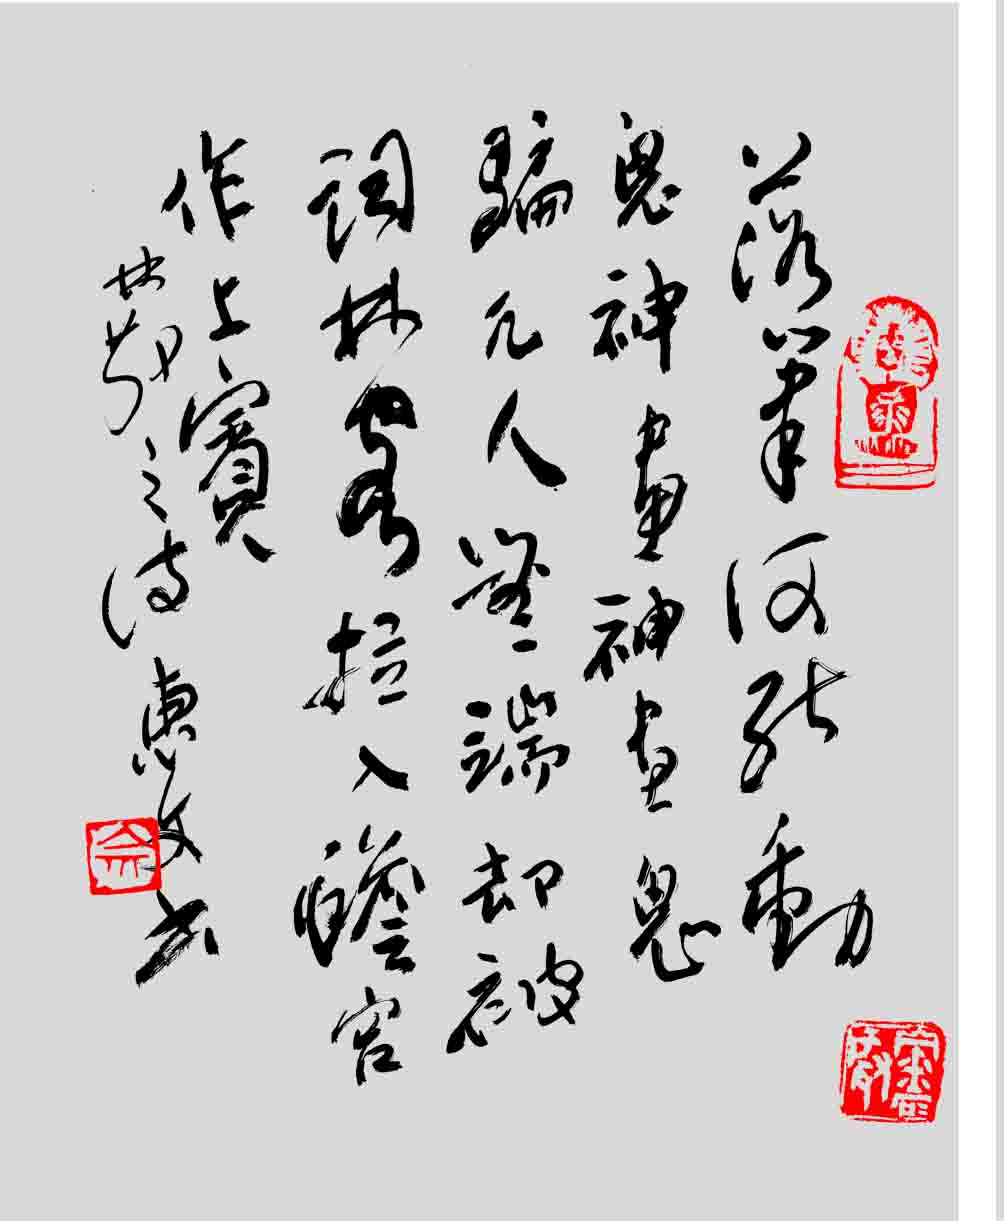 落筆何能動
鬼神畫神畫鬼
騙凡人無端却被
詞林客拉入蟾宮
作上賓
林散之詩惠文书